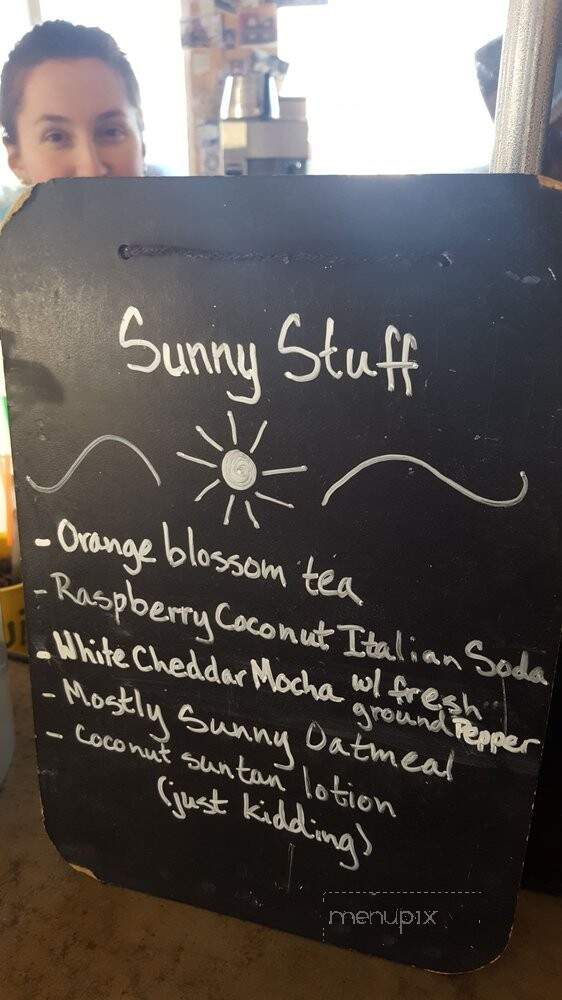 Sunny Stuff
- Orange blossom tea
- Raspberry Coconut Italian Soda
- White Cheddar Mocha w/ fresh
ground Pepper
- Mostly Sunny Oatmeal
- Coconut suntan lotion
(just kidding)
menupix